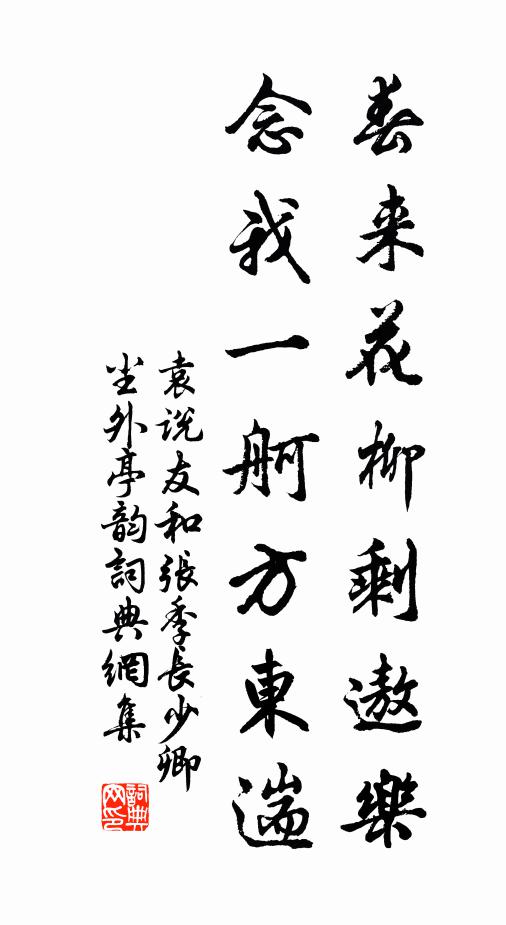 春来花柳剩遨樂
念我一舸方東遄
袁说友和張季長少卿
尘外亭韵詞典網集
詞典网印